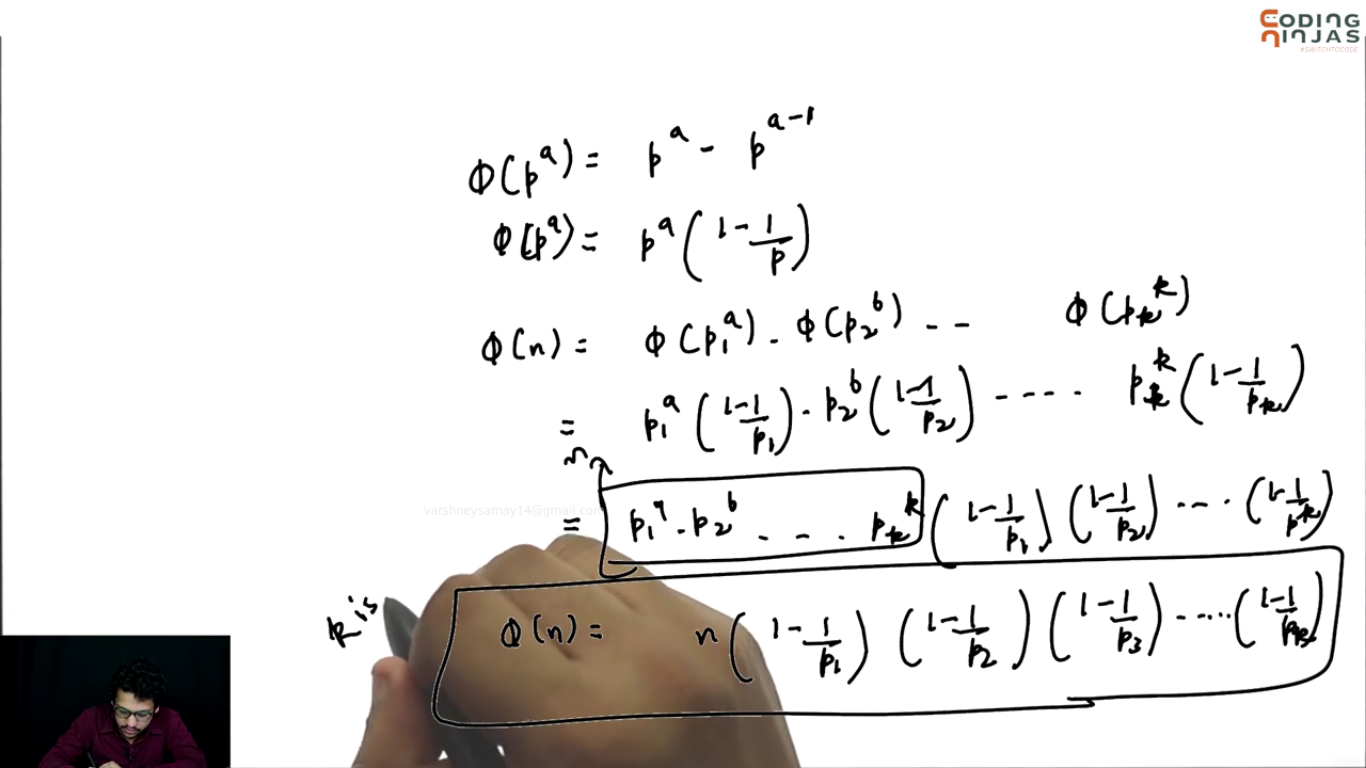 CODING NINJAS
#SWITCHTOCODE
Φ(p^a) = p^a - p^(a-1)
Φ(p^a) = p^a (1 - 1/p)
Φ(n) = Φ(p₁^a) . Φ(p₂^b) - - Φ(p_k^k)
= p₁^a (1 - 1/p₁) . p₂^b (1 - 1/p₂) - - - - p_k^k (1 - 1/p_k)
n
= p₁^a . p₂^b . - - . p_k^k (1 - 1/p₁) (1 - 1/p₂) - - - . (1 - 1/p_k)
varshneysamay14@gmail.com
k is
Φ(n) = n (1 - 1/p₁) (1 - 1/p₂) (1 - 1/p₃) - - .... (1 - 1/p_k)